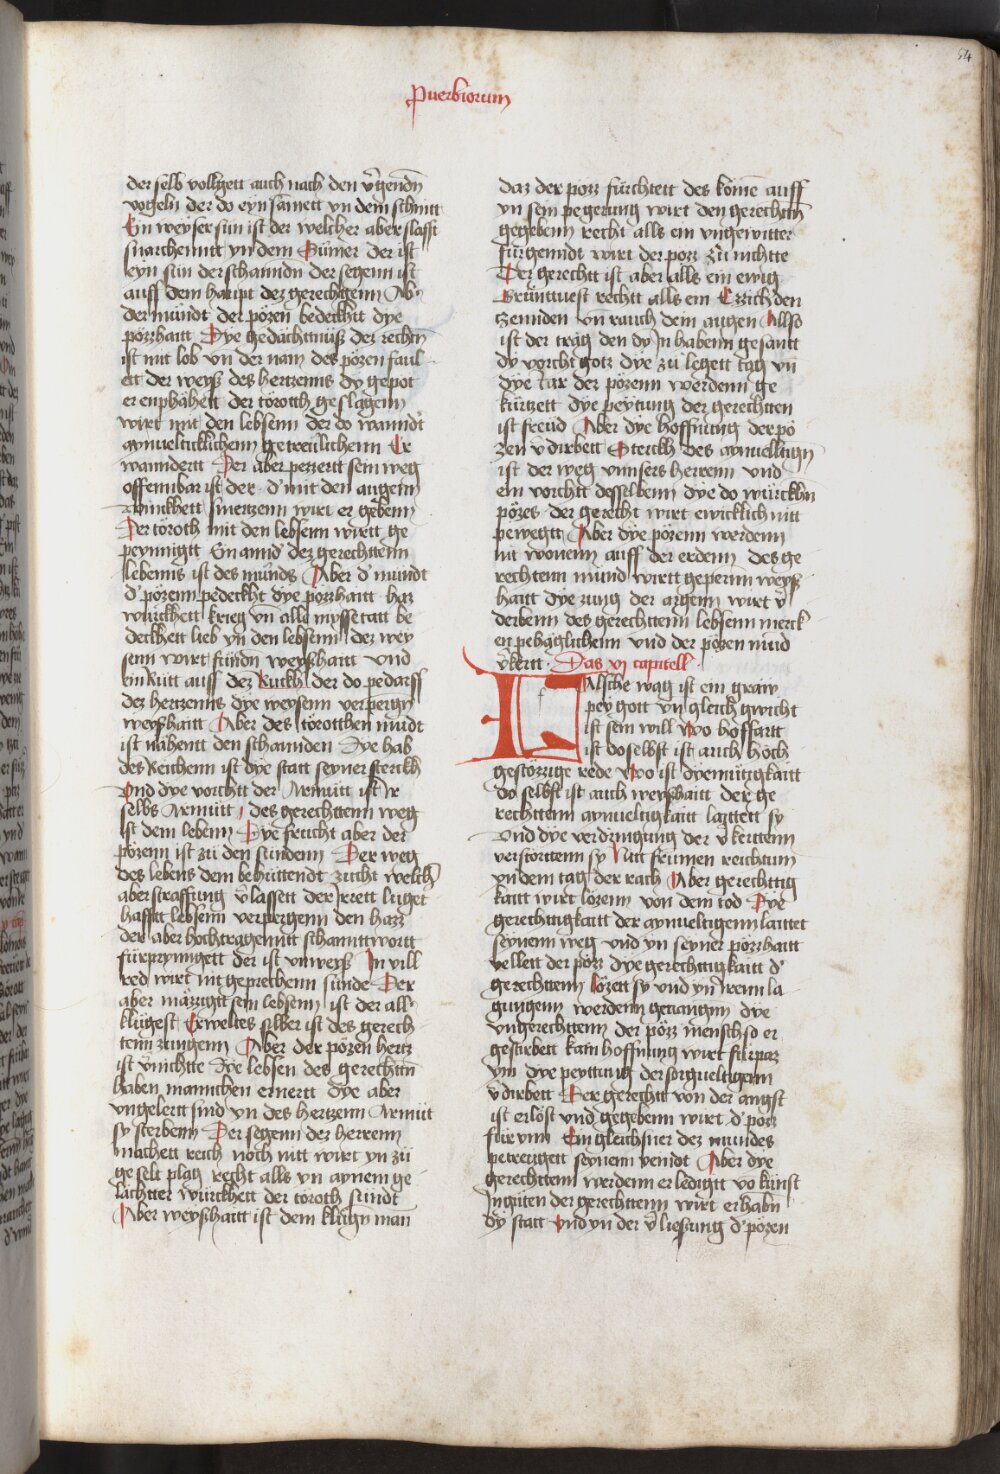 54
Puerbiorum
der selb volkgett auch nach den v̈gendn̄
vogeln der do eyn samett yn dem schnitt
Ein weyser sun ist der welcher aber slafft
snarchennitt yn dem Sūmer der ist
eyn sun der schanndn̄ der segenn ist
auff dem haupt dez gerechtigenn Ab'
der mundt der pözen bedeckhtt dye
pözzhaitt Dye gedächtnuß der rechtn̄
ist mit lob vn der nam des pözen faul
ett der weyß des hertzenns dy gepot
er enphähett der törotth geslagenn
wirt mit den lebsenn der do wanndt
aynuelticklichenn getreülichenn Er
wanndertt Der aber pezzertt sein weg
offennbar ist der d' mit den augenn
winckhett smertzenn wirt er gebenn
Der töroth mit den lebsenn wirtt ge
peynnigtt Ein annd dez gerechttenn
lebenns ist des mūnds Aber d' mundt
d' pözenn pedeckht dye pozzhaitt haz
würckhett krieg vn̄ alle myssetatt be
deckhett lieb yn den lebsenn dez wey
senn wirt fundn̄ weyßhaitt vnd
ein Rutt auff dez Ruckh der do pedarff
dez hertzenns dye weysenn verpergn̄
weyßhaitt Aber des törotthen mūdt
ist nähentt den schannden Dye hab
des Reichenn ist dye statt seyner sterckh
Vnd dye vorchtt der Armütt ist Ir
selbs Armütt des gerechttenn weg
ist dem lebenn Dye frucht aber der
pözenn ist zu den sundenn Der weg
des lebens dem behüttendt zücht welch'
aber straffung v̈lassett der Irrett luget
hafftt lebsenn verpergenn den hazz
der aber hochtragennitt schanntwortt
fürprynngett der ist vnweyß In vill
red wirt nit geprechenn sünde Der
aber mäzzigtt sein lebsenn ist der all
klügest Erweltes silber ist des gerech
tenn zungenn Aber der pözen hertz
ist v̈mchtte Dye lebsen des gerechttn̄
haben mannichen ernertt dye aber
vngelertt sind yn des hertzenn Armütt
sy sterbenn Der segenn dez herrenn
machett reich noch nitt wirt yn zü
geselt plag recht alls yn aynem ge
lächtter würckhett der töroth sündt
Aber weyßhaitt ist dem klugn̄ man
daz der pözz fürchtett des kōme auff
yn sein pegerung wirt den gerechttn̄
gegebenn recht alls ein vngewitter
fürgenndt wirt der pözz zū nichtte
Der gerechtt ist aber alls ein ewig
Gruntuest rechtt alls ein Ezzich den
tzennden vn̄ rauch dem augen Allso
ist der träg den dy In habenn gesantt
dy vorcht gotz dye zu legett tag vn̄
dye Iar der pözenn werdenn ge
kürtzett dye peytung der gerechtten
ist freüd Aber dye hoffnung der pö
zen v̈dirbett Sterckh des aynueltign̄
ist der weg vnnsers herrenn vnd
ein vorchtt desselbenn dye do würckhn̄
pözes der gerecht wirt ewicklich nitt
pewegtt Aber dye pözenn werdenn
nit wonenn auff der erdenn des ge
rechtenn mund wirtt gepernn weyß
haitt dye zung der argenn wirt v̈
derbenn des gerechttenn lebsenn merck
en pehäglichenn vnd der pözen mūd
v̈kertt Das xj capitell
Alsche wag ist ein gräw
pey gott vn̄ gleich gewicht
ist sein will Wo hoffartt
ist doselbst ist auch höch
gestözzige rede Wo ist dyemüttigkaitt
do selbst ist auch weyßhaitt der ge
rechttenn aynueltigkaitt laittett sy
Vnd dye verdrugung der v̈kerttenn
verstörttenn sy Nitt frümen reichtum
yn dem tag der rach Aber gerechttig
kaitt wirt lözenn von dem tod Dye
gerechtigkaitt der aynueltigenn laittet
seynenn weg vnd yn seyner pözzhaitt
vellett der pözz dye gerechttigkaitt d'
gerechttenn lözett sy vnd yn Irenn la
gungenn werdenn geuangn̄ dye
vngerechttenn der pözz mensch so er
gestirbett kain hoffnung wirt fürpaz
vnd dye peyttung der sorgueltigenn
v̈dirbett Der gerecht von der angst
ist erlöst vnd gegebenn wirt d' pözz
für ym Ein gleichsner dez mundes
petreügett seynenn veindt Aber dye
gerechttenn werdenn erledigtt vō künst
In guten der gerechttenn wirt erhabn̄
dy statt Vnd yn der v̈liesung d' pözen